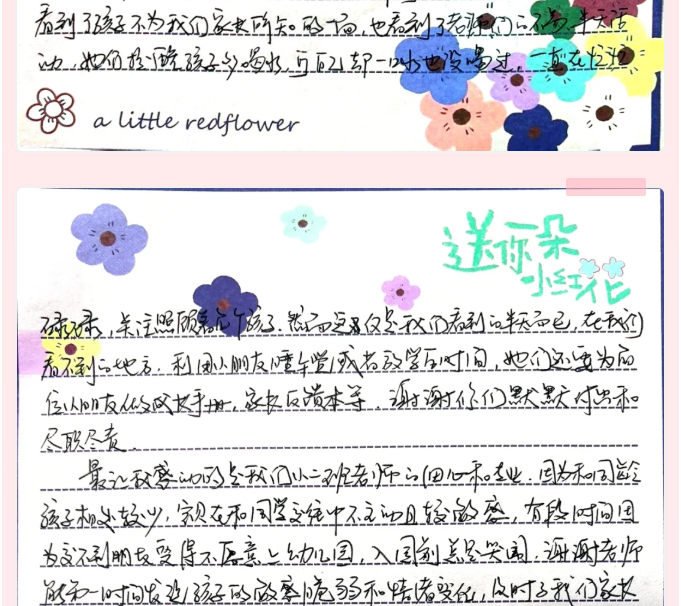 看到了孩子不为我们家长所知的一面，也看到了老师们的不易，半天活
动，她们提醒孩子多喝水，可自己却一口水也没喝过，一直在忙忙
a little redflower
送你一朵
小红花
碌碌，关注照顾着每个孩子，然而这仅仅是我们看到的半天而已，在我们
看不到的地方，利用小朋友睡午觉或者放学后时间，她们还要为每
位小朋友做成长手册，家长反馈本等，谢谢你们默默付出和
尽职尽责。
最让我感动的是我们小二班老师的细心和专业，因为和同龄
孩子相处较少，家颀在和同学交往中不主动且较敏感，有段时间因
为交不到朋友变得不愿意上幼儿园，入园前总是哭闹，谢谢老师
能第一时间发现孩子的敏感脆弱和情绪变化，及时与我们家长